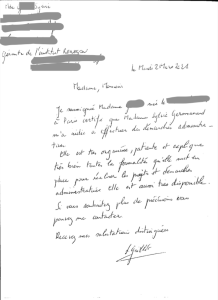 Mme
Gérante de l'institut
le Mardi 2 Mars 2021
Madame, Monsieur
Je soussignée Madame née le
à Paris certifie que Madame Sylvie
m'a aidée à effectuer des démarches administra-
tives.
Elle est très organisée, patiente et explique
très bien toutes les formalités qu'elle met en
place pour réaliser les projets et démarches
administratives elle est aussi très disponible.
Si vous souhaitez plus de précisions vous
pouvez me contacter.
Recevez mes salutations distinguées